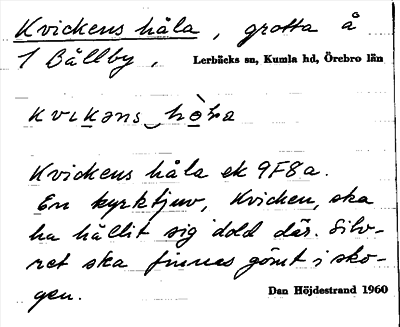 Kvickens håla, grotta å
1 Bällby, Lerbäcks sn, Kumla hd, Örebro län
Kvickens håla ek 9F8a.
En kyrktjuv, Kvicken, ska
ha hållit sig dold där. Silv-
ret ska finnas gömt i sko-
gen. Dan Höjdestrand 1960